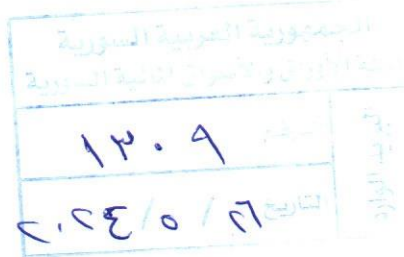 الجمهورية العربية السورية
هيئة الأوراق والأسواق المالية السورية
رقم ١٣٠٩
التاريخ ٢٦ / ٥ / ٢٠٢٤
البريد الوارد